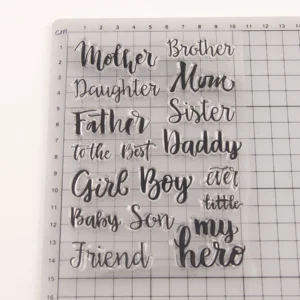 cm 1 2 3 4 5 6 7 8 9 10
1
2
3
4
5
6
7
8
9
10
11
12
13
14
15
16
Mother
Brother
Daughter
Mom
Father
Sister
to the Best
Daddy
Girl Boy
ever
little
Baby Son
my
hero
Friend